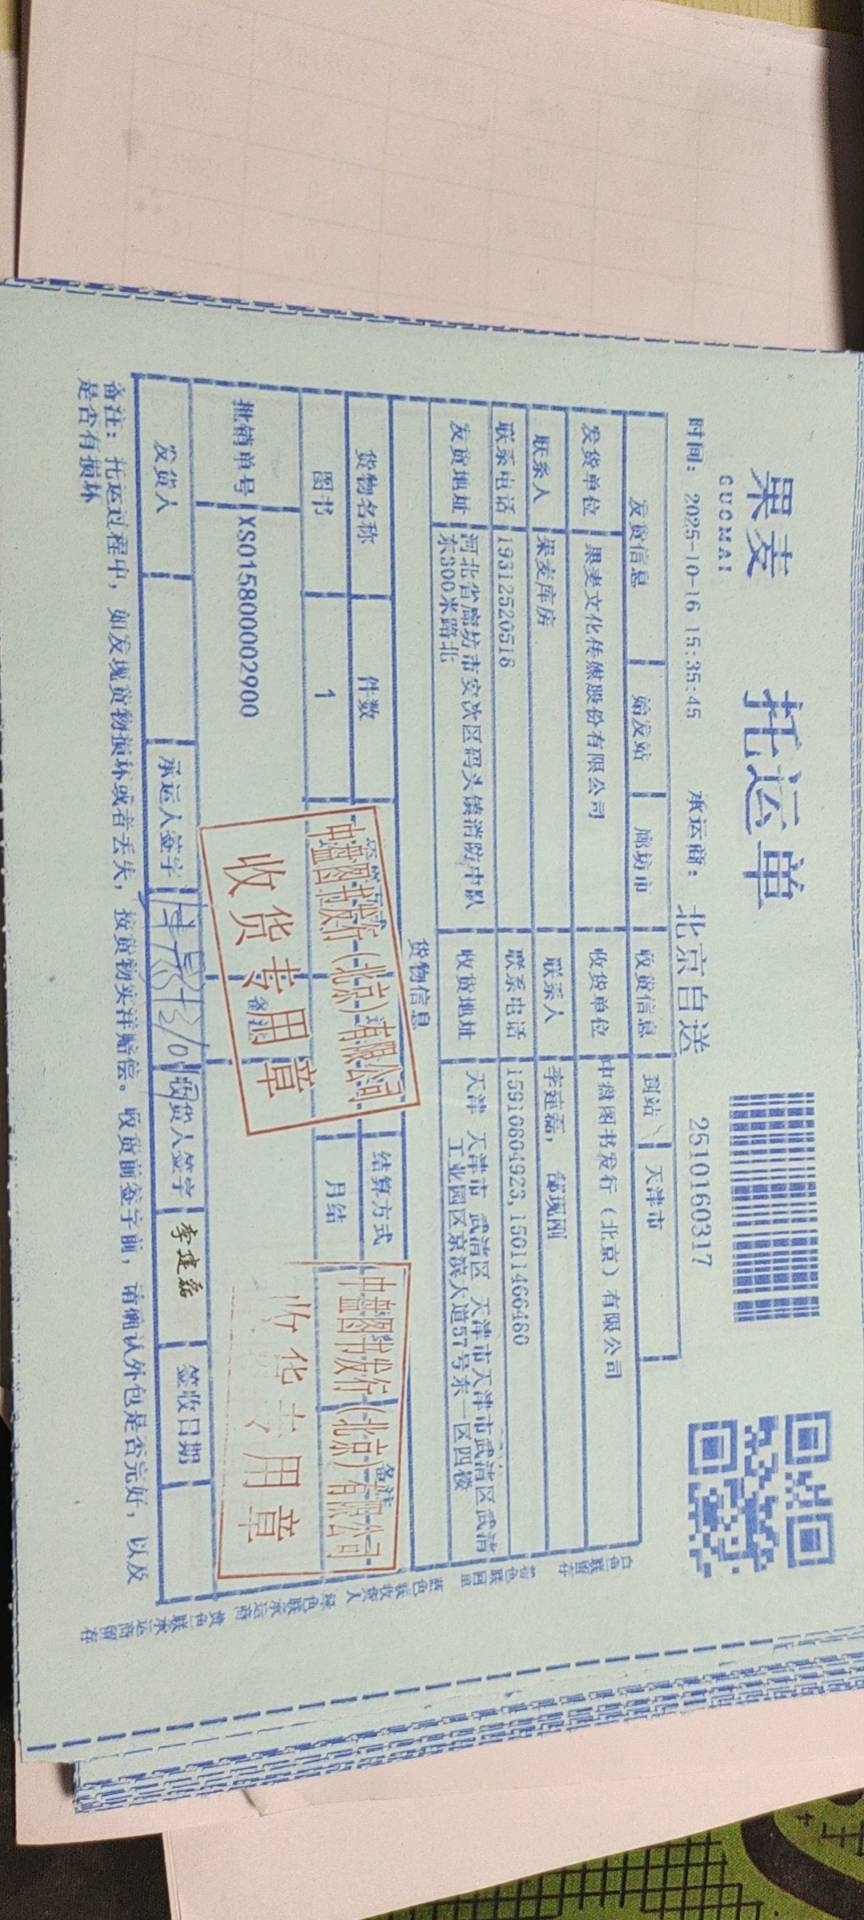 果麦
GUOMAI
托运单
时间: 2025-10-16 15:35:45 承运商: 北京自送 2510160317
发货信息 始发站 廊坊市 收货信息 到站 天津市
发货单位 果麦文化传媒股份有限公司 收货单位 中盘图书发行(北京)有限公司
联系人 果麦库房 联系人 李建磊, 郜现刚
联系电话 19312520518 联系电话 15910604923,15011466480
发货地址 河北省廊坊市安次区码头镇消防中队 收货地址 天津 天津市 武清区 天津市天津市武清区武清
东300米路北 工业园区京滨大道57号东一区四楼
货物信息
货物名称 件数 结算方式 备注
图书 1 月结
批销单号 XS015800002900 备注
中盘图书发行(北京)有限公司
收货专用章
中盘图书发行(北京)有限公司
专用章
发货人 承运人签字 收货人签字 李建磊 签收日期
备注: 托运过程中, 如发现货物损坏或者丢失, 按货物实洋赔偿。收货前签字前, 请确认外包是否完好, 以及
是否有损坏
白色联留存
蓝色联收货人
绿色联承运商
黄色联承运商留存